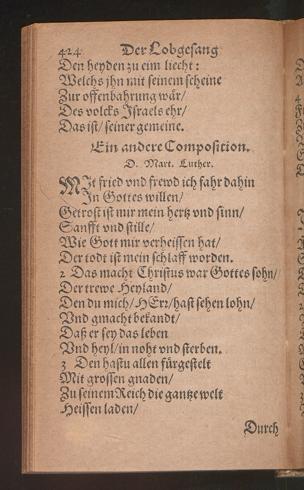 424 Der Lobgesang
Den heyden zu eim liecht:
Welchs jhn mit seinem scheine
Zur offenbahrung wär/
Des volcks Jsraels ehr/
Das ist/ seiner gemeine.
Ein andere Composition.
D. Mart. Luther.
MJt fried vnd frewd ich fahr dahin
In Gottes willen/
Getrost ist mir mein hertz vnd sinn/
Sanfft vnd stille/
Wie Gott mir verheissen hat/
Der todt ist mein schlaff worden.
2 Das macht Christus war Gottes sohn/
Der trewe Heyland/
Den du mich/ HErr/ hast sehen lohn/
Vnd gmacht bekandt/
Daß er sey das leben
Vnd heyl/ in noht vnd sterben.
3 Den hastu allen fürgestelt
Mit grossen gnaden/
Zu seinem Reich die gantze welt
Heissen laden/
Durch